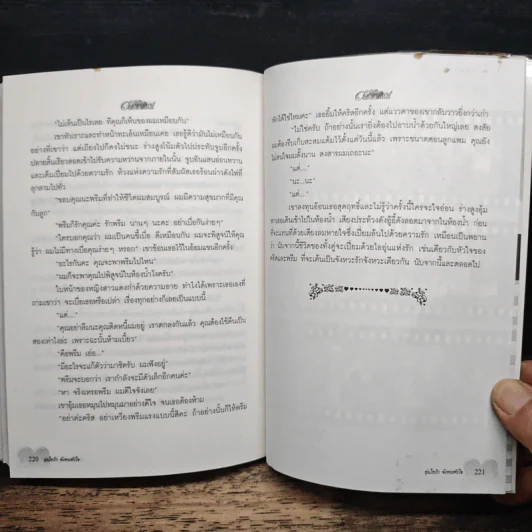 "ไม่เห็นเป็นไรเลย ที่คุณก็เห็นของผมเหมือนกัน"
เขาหัวเราะและทำหน้าทะเล้นเหมือนเคย เธอรู้ดีว่ามันไม่เหมือนกัน
อย่างที่เขาว่า แต่เถียงไปก็คงไม่ชนะ ร่างสูงโน้มตัวไปประทับจูบอีกครั้ง
ปลายลิ้นเรียวสอดเข้าไปรับความหวานจากภายในนั้น จูบอันแสนอ่อนหวาน
และเต็มเปี่ยมไปด้วยความรัก ห้วงแห่งความรักที่สัมผัสเธอร้อนผ่าวดังไฟที่
ลุกลามไปทั่ว
"ขอบคุณนะพริมที่ทำให้ชีวิตผมสมบูรณ์ ผมมีความสุขมากที่มีคุณ
กับลูก"
"พริมก็รักคุณค่ะ รักพริม นานๆ นะคะ อย่าเบื่อกันง่ายๆ"
"ใครบอกคุณว่า ผมเป็นคนขี้เบื่อ ดีเหมือนกัน ผมจะพิสูจน์ให้คุณ
รู้ว่า ผมไม่มีทางเบื่อคุณง่ายๆ หรอก" เขาช้อนเธอไว้ในอ้อมแขนอีกครั้ง
"อะไรกันคะ คุณจะพาพริมไปไหน"
"ผมก็จะพาคุณไปพิสูจน์ในห้องน้ำไงครับ"
ใบหน้าของหญิงสาวแดงก่ำด้วยความอาย ทำไงได้เพราะเธอเองที่
ถามเขาว่า จะเบื่อเธอหรือเปล่า เรื่องทุกอย่างก็เลยเป็นแบบนี้
"แต่..."
"คุณอย่าลืมนะคุณติดหนี้ผมอยู่ เราตกลงกันแล้ว คุณต้องใช้คืนเป็น
สองเท่าไงล่ะ เพราะฉะนั้นห้ามเบี้ยว"
"คือพริม เอ่อ..."
"มีอะไรจะแก้ตัวว่ามาซิครับ ผมฟังอยู่"
"พริมจะบอกว่า เรากำลังจะมีตัวเล็กอีกคนค่ะ"
"หา จริงเหรอพริม ผมดีใจจังเลย"
เขาอุ้มเธอหมุนไปหมุนมาอย่างดีใจ จนเธอต้องห้าม
"อย่าค่ะคริส อย่าเหวี่ยงพริมแรงแบบนี้สิคะ ถ้าอย่างนั้นก็ให้พริม
220 อุ่นไอรัก
พักได้ใช่ไหมคะ" เธอยิ้มให้คริสอีกครั้ง แต่แววตาของเขากลับวาวยิ่งกว่าเก่า
"ไม่ใช่ครับ ถ้าอย่างนั้นเรายิ่งต้องไปอาบน้ำด้วยกันใหญ่เลย สงสัย
ผมต้องรีบเก็บสะสมแต้มไว้ตั้งแต่วันนี้แล้ว เพราะขนาดตอนลูกแพม คุณยัง
ไม่สนใจผมตั้งนาน สงสารผมเถอะนะ"
"แต่..."
"นะ...นะ"
"แต่..."
เขาลงทุนอ้อนเธอสุดฤทธิ์และไม่รู้ว่าครั้งนี้ใครจะใจอ่อน ร่างสูงอุ้ม
สายสวาทเดินเข้าไปในห้องน้ำ
ว่า นับจากนี้ชีวิตของทั้งคู่จะเปี่ยมด้วยไออุ่นแห่งรัก เช่นเดียวกับหัวใจของ
คริสและพริม ที่จะเต้นเป็นจังหวะรักจังหวะเดียวกัน นับจากนี้และตลอดไป
อุ่นไอรัก 221